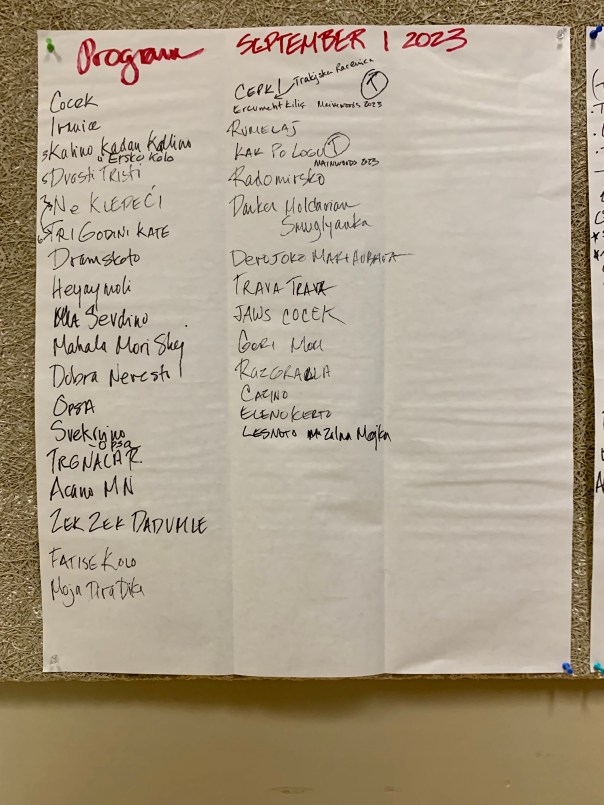 Program SEPTEMBER 1 2023
Cocek
Kalino Kadan Kallino
u Ersko Kolo
Dvosti Tristi
Ne KLEPEĆI
TRI GODINI KATE
Dramskoto
Heyaymoli
Sevdino
Mahala Mori Shej
Dobra Nevesti
OpSA
Svekrvino
- Opsa
TRGNALA R.
Acano MN
ZEK ZEK DADUMLE
FATISE KOLO
Moja Tira Dika
CEPK Trakijska Racenica
Ercument Kilic Mainwords 2023
RUMELAJ
KAK PO LOGU T
MAINWORDS 2023
Radomirsko
Danker Moldavian
Smuglyanka
Devojoke
TRAVA TRAVA
JAWS COCEK
GORI MOM
RAZGRADLA
CAZINO
ELENO KERTO
LESNOTO Zelna Mojka